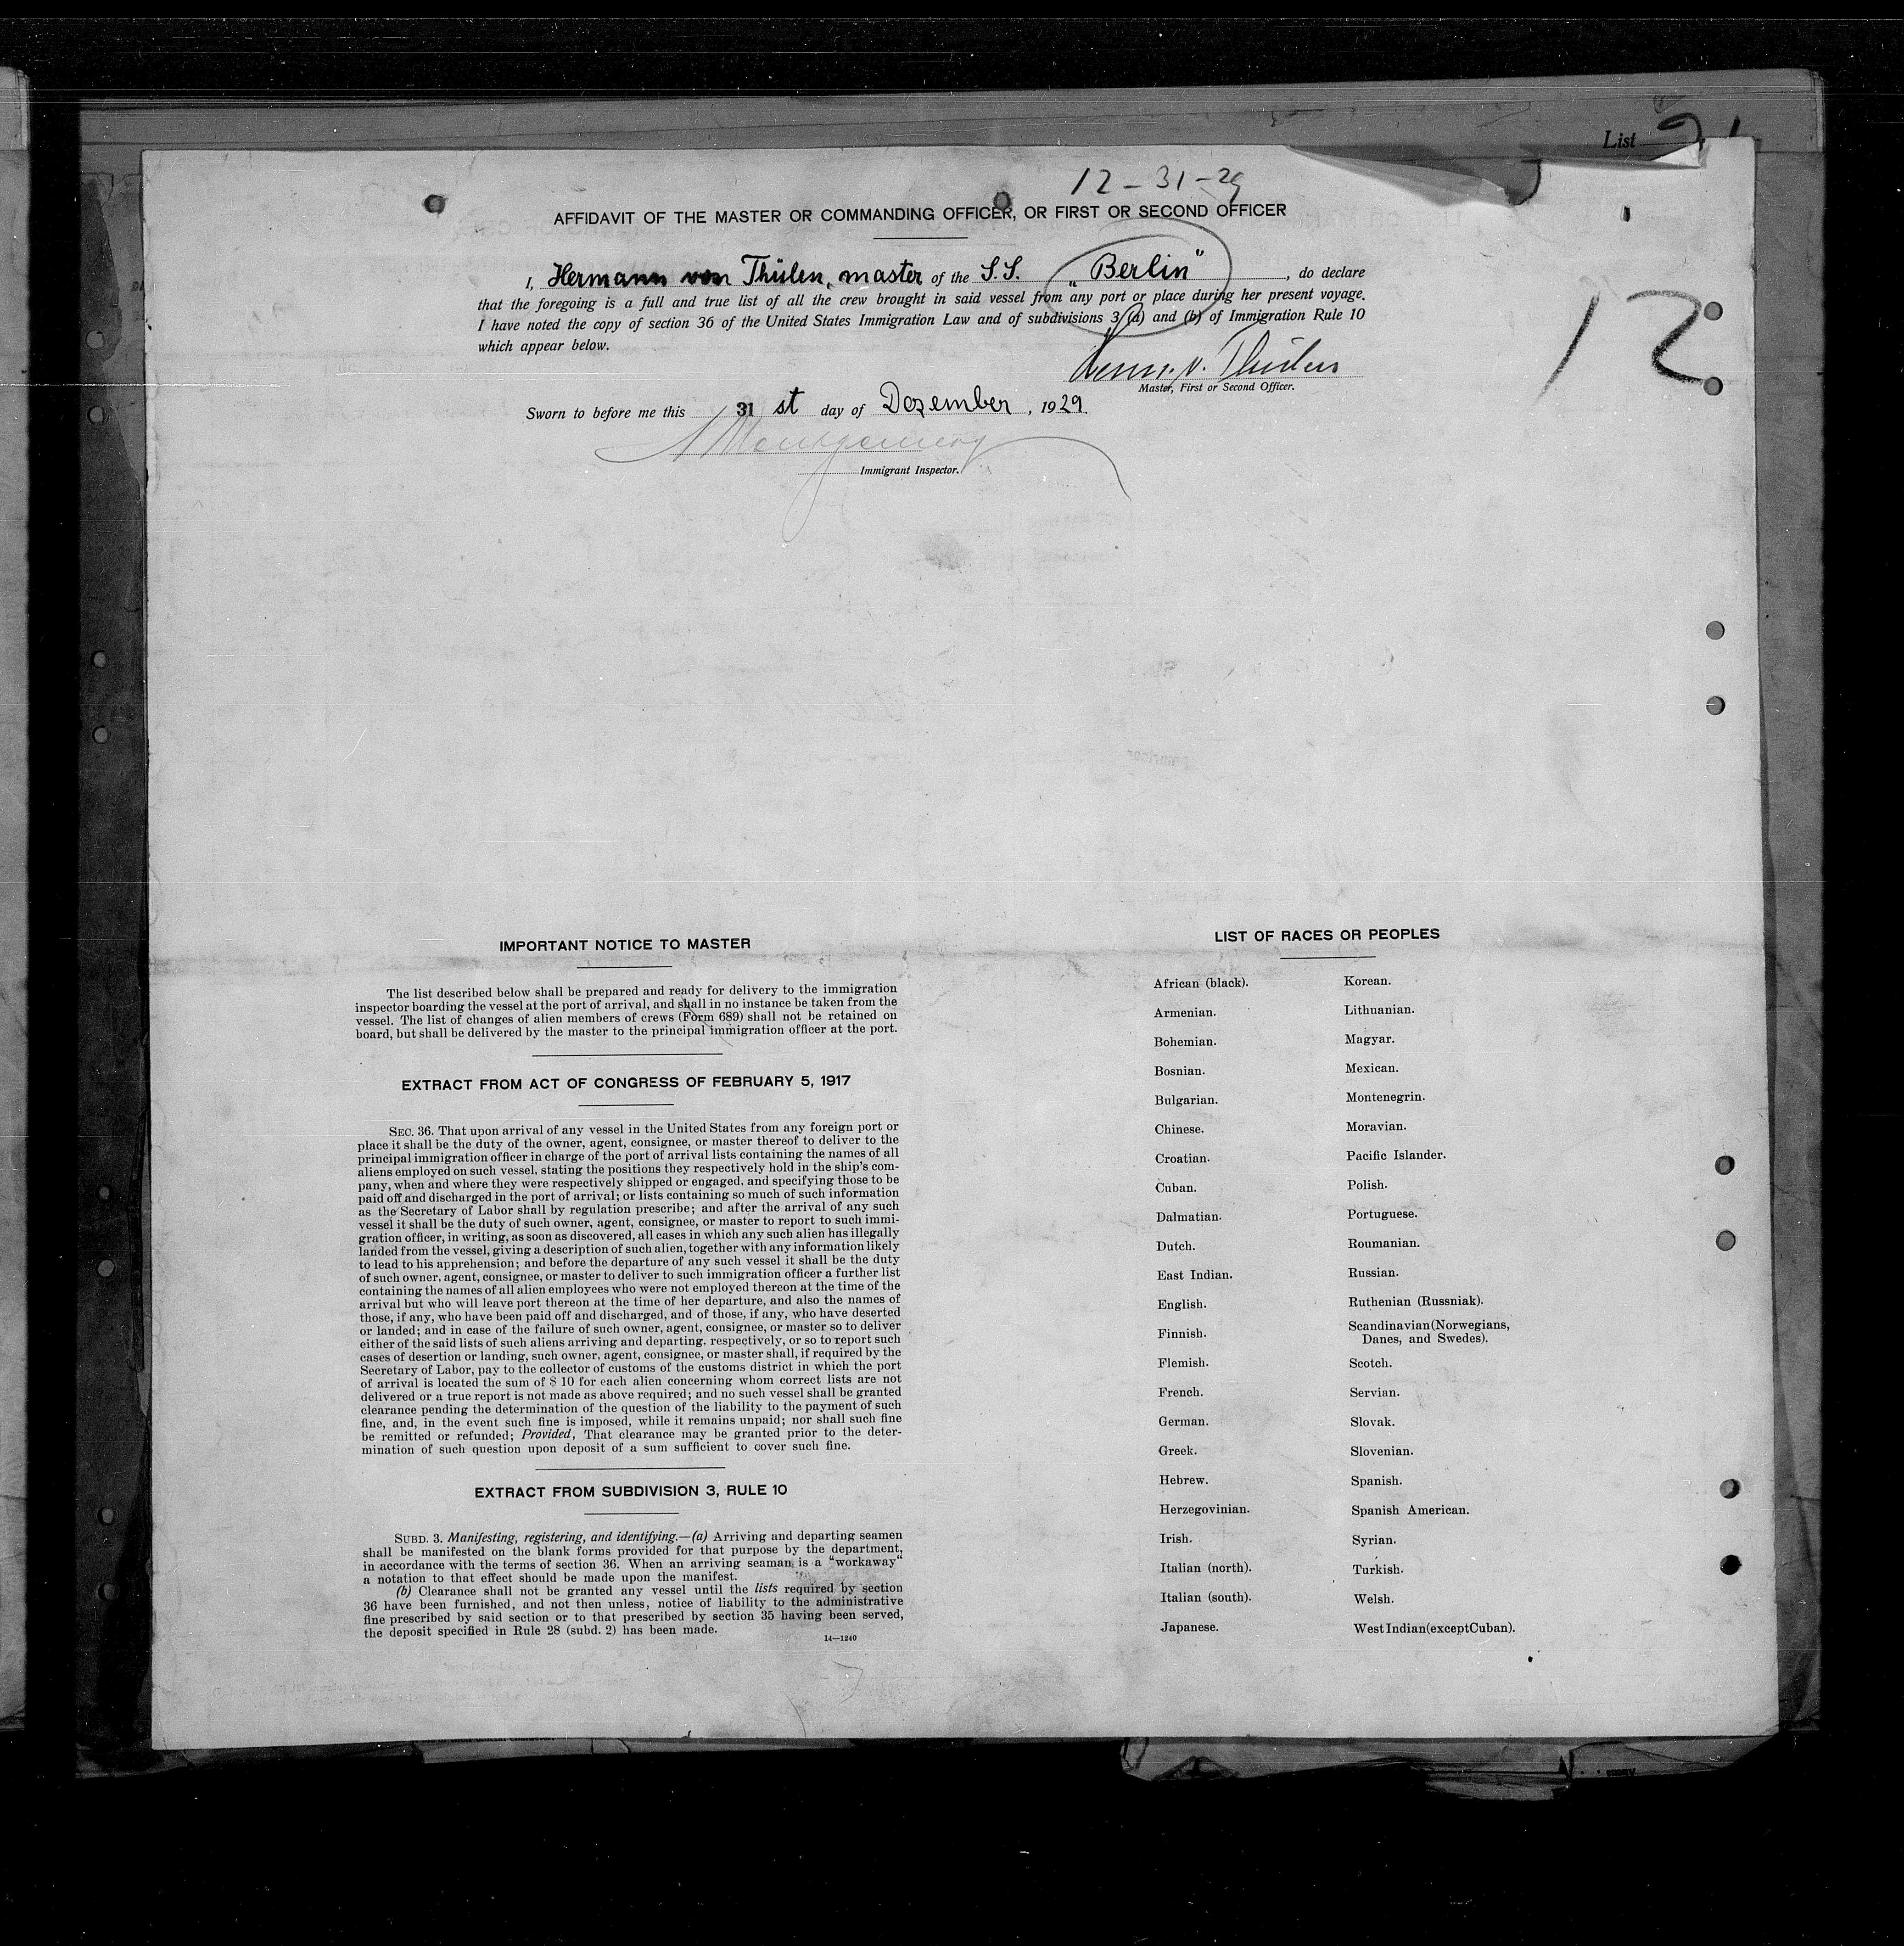 List
12-31-29
AFFIDAVIT OF THE MASTER OR COMMANDING OFFICER, OR FIRST OR SECOND OFFICER
I, Hermann von Thülen, master of the S.S. „Berlin", do declare
that the foregoing is a full and true list of all the crew brought in said vessel from any port or place during her present voyage.
I have noted the copy of section 36 of the United States Immigration Law and of subdivisions 3 (a) and (b) of Immigration Rule 10
which appear below.
12
Herm. v. Thülen
Master, First or Second Officer.
Sworn to before me this 31 st day of Dezember, 1929.
Montgomery
Immigrant Inspector.
IMPORTANT NOTICE TO MASTER
The list described below shall be prepared and ready for delivery to the immigration
inspector boarding the vessel at the port of arrival, and shall in no instance be taken from the
vessel. The list of changes of alien members of crews (Form 689) shall not be retained on
board, but shall be delivered by the master to the principal immigration officer at the port.
EXTRACT FROM ACT OF CONGRESS OF FEBRUARY 5, 1917
SEC. 36. That upon arrival of any vessel in the United States from any foreign port or
place it shall be the duty of the owner, agent, consignee, or master thereof to deliver to the
principal immigration officer in charge of the port of arrival lists containing the names of all
aliens employed on such vessel, stating the positions they respectively hold in the ship's com-
pany, when and where they were respectively shipped or engaged, and specifying those to be
paid off and discharged in the port of arrival; or lists containing so much of such information
as the Secretary of Labor shall by regulation prescribe; and after the arrival of any such
vessel it shall be the duty of such owner, agent, consignee, or master to report to such immi-
gration officer, in writing, as soon as discovered, all cases in which any such alien has illegally
landed from the vessel, giving a description of such alien, together with any information likely
to lead to his apprehension; and before the departure of any such vessel it shall be the duty
of such owner, agent, consignee, or master to deliver to such immigration officer a further list
containing the names of all alien employees who were not employed thereon at the time of the
arrival but who will leave port thereon at the time of her departure, and also the names of
those, if any, who have been paid off and discharged, and of those, if any, who have deserted
or landed; and in case of the failure of such owner, agent, consignee, or master so to deliver
either of the said lists of such aliens arriving and departing, respectively, or so to report such
cases of desertion or landing, such owner, agent, consignee, or master shall, if required by the
Secretary of Labor, pay to the collector of customs of the customs district in which the port
of arrival is located the sum of $ 10 for each alien concerning whom correct lists are not
delivered or a true report is not made as above required; and no such vessel shall be granted
clearance pending the determination of the question of the liability to the payment of such
fine, and, in the event such fine is imposed, while it remains unpaid; nor shall such fine
be remitted or refunded; Provided, That clearance may be granted prior to the deter-
mination of such question upon deposit of a sum sufficient to cover such fine.
EXTRACT FROM SUBDIVISION 3, RULE 10
SUBD. 3. Manifesting, registering, and identifying.—(a) Arriving and departing seamen
shall be manifested on the blank forms provided for that purpose by the department,
in accordance with the terms of section 36. When an arriving seaman is a "workaway"
a notation to that effect should be made upon the manifest.
(b) Clearance shall not be granted any vessel until the lists required by section
36 have been furnished, and not then unless, notice of liability to the administrative
fine prescribed by said section or to that prescribed by section 35 having been served,
the deposit specified in Rule 28 (subd. 2) has been made.
14—1240
LIST OF RACES OR PEOPLES
African (black).
Armenian.
Bohemian.
Bosnian.
Bulgarian.
Chinese.
Croatian.
Cuban.
Dalmatian.
Dutch.
East Indian.
English.
Finnish.
Flemish.
French.
German.
Greek.
Hebrew.
Herzegovinian.
Irish.
Italian (north).
Italian (south).
Japanese.
Korean.
Lithuanian.
Magyar.
Mexican.
Montenegrin.
Moravian.
Pacific Islander.
Polish.
Portuguese.
Roumanian.
Russian.
Ruthenian (Russniak).
Scandinavian (Norwegians,
Danes, and Swedes).
Scotch.
Servian.
Slovak.
Slovenian.
Spanish.
Spanish American.
Syrian.
Turkish.
Welsh.
West Indian (except Cuban).